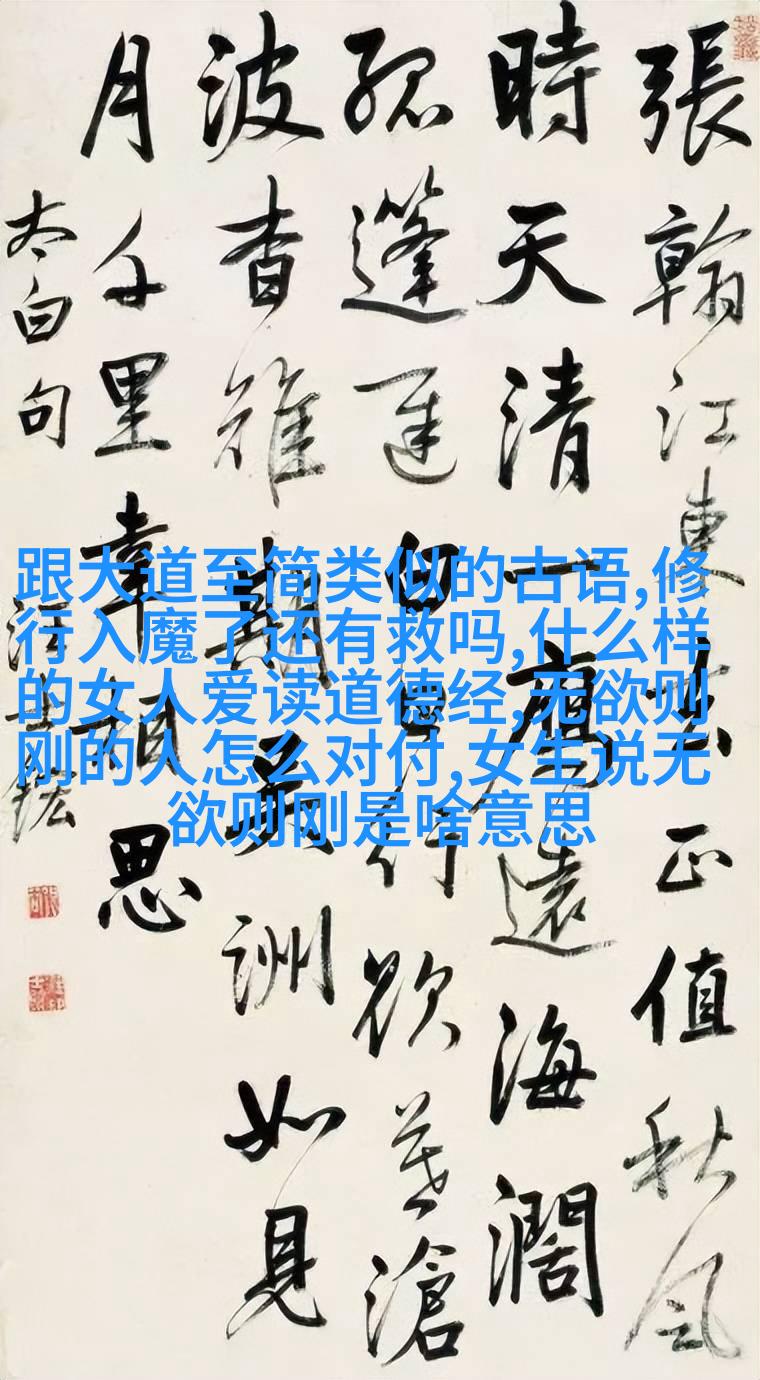 張翰江東去正值秋風
時天清一鴈遠海闊
孤篷遲白日行欲暮滄
波杳難期吳洲如見
月千里幸相思
太白句
汪士鋐
跟大道至简类似的古语,修
行入魔了还有救吗,什么样
的女人爱读道德经,无欲则
刚的人怎么对付,女生说无
欲则刚是啥意思